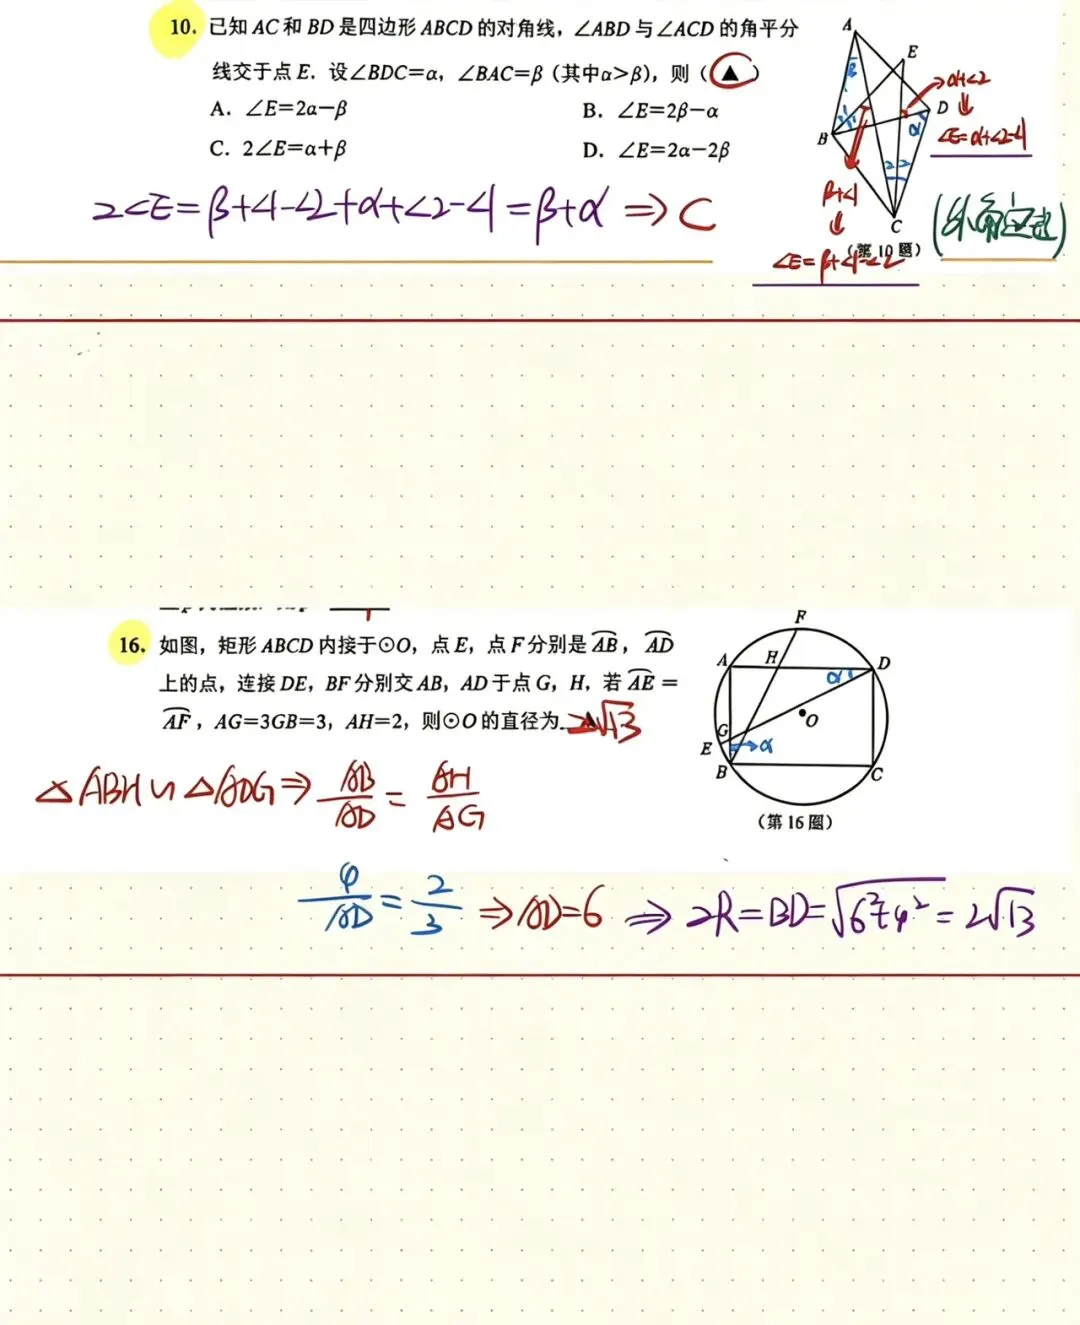 10. 已知 AC 和 BD 是四边形 ABCD 的对角线，∠ABD 与∠ACD 的角平分
线交于点 E. 设∠BDC=α，∠BAC=β（其中α>β），则（▲）
A. ∠E=2α−β
B. ∠E=2β−α
C. 2∠E=α+β
D. ∠E=2α−2β
2∠E=β+∠1−∠2+α+∠2−∠1=β+α ⇒ C
A
E
D
B
C
β
1
1
2
2
α
α+∠2
⇓
∠E=α+∠2−∠1
β+∠1
⇓
∠E=β+∠1−∠2
（第 10 题）
(外角定理)
16. 如图，矩形 ABCD 内接于⊙O，点 E，点 F 分别是 A͡B，A͡D
上的点，连接 DE，BF 分别交 AB，AD 于点 G，H，若 A͡E =
A͡F，AG=3GB=3，AH=2，则⊙O 的直径为 ▲ 2√13
F
A
H
D
α
O
G
E
α
B
C
（第 16 图）
△ABH∽△ADG ⇒ AB/AD = AH/AG
4/AD = 2/3 ⇒ AD=6 ⇒ 2R=BD=√(6²+4²) = 2√13